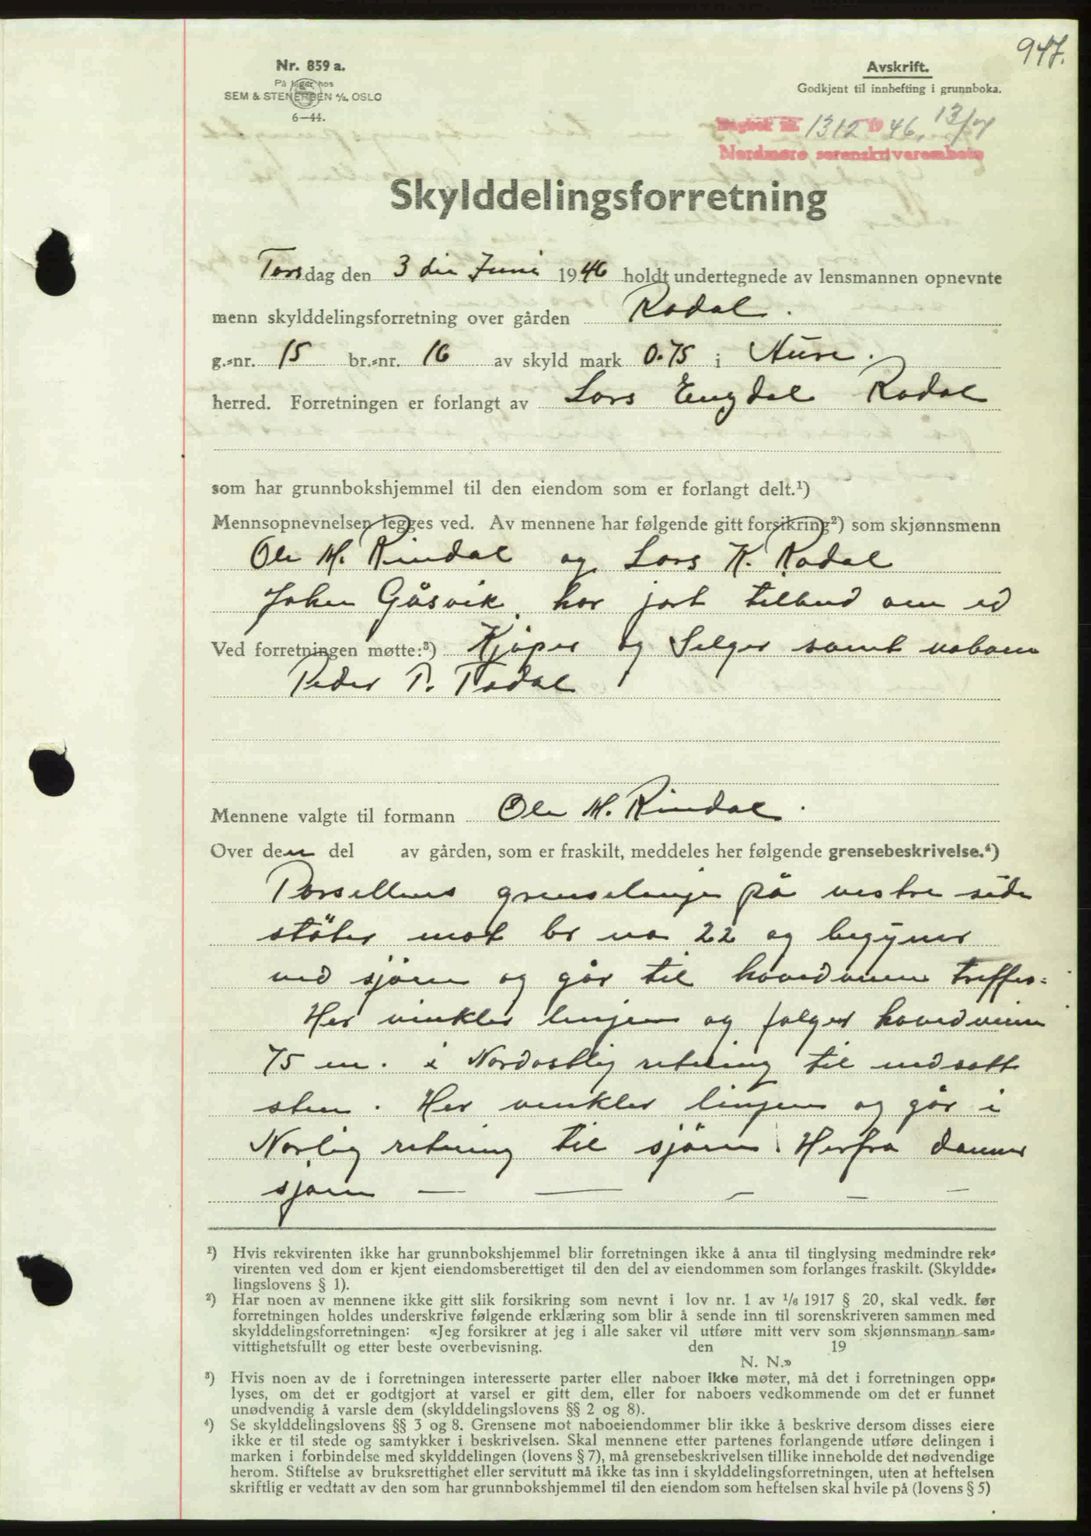 947.
Nr. 859 a.
På lager hos
SEM & STENERSEN A/S, OSLO
6—44.
Avskrift.
Godkjent til innhefting i grunnboka.
Dagbok nr. 1312 1946, 13/7
Nordmøre sorenskriverembete
Skylddelingsforretning
Torsdag den 3 die Juni 1946 holdt undertegnede av lensmannen opnevnte
menn skylddelingsforretning over gården Rodal.
g.-nr. 15 br.-nr. 16 av skyld mark 0.75 i Aure.
herred. Forretningen er forlangt av Lars Engdal Rodal
som har grunnbokshjemmel til den eiendom som er forlangt delt.¹)
Mennsopnevnelsen legges ved. Av mennene har følgende gitt forsikring²) som skjønnsmenn
Ole M. Rindal og Lars K. Rodal
Johan Gåsvik, har jort tilbud om ed
Ved forretningen møtte:³) Kjøper og Selger samt naboen
Peder P. Todal
Mennene valgte til formann Ole M. Rindal.
Over den del av gården, som er fraskilt, meddeles her følgende grensebeskrivelse.⁴)
Parsellens grenselinje på vestre side
støter mot br no 22 og begyner
ved sjøen og går til hovedveien treffes.
Her vinkler linjen og følger hovedveien
75 m. i Nordostlig retning til nedsatt
sten. Her vinkler linjen og går i
Norlig retning til sjøen. Herfra danner
sjøen — — — — —
¹) Hvis rekvirenten ikke har grunnbokshjemmel blir forretningen ikke å anta til tinglysing medmindre rek-
virenten ved dom er kjent eiendomsberettiget til den del av eiendommen som forlanges fraskilt. (Skyldde-
lingslovens § 1).
²) Har noen av mennene ikke gitt slik forsikring som nevnt i lov nr. 1 av 1/6 1917 § 20, skal vedk. før
forretningen holdes underskrive følgende erklæring som blir å sende inn til sorenskriveren sammen med
skylddelingsforretningen: «Jeg forsikrer at jeg i alle saker vil utføre mitt verv som skjønnsmann sam-
vittighetsfullt og etter beste overbevisning. den 19
N. N.»
³) Hvis noen av de i forretningen interesserte parter eller naboer ikke møter, må det i forretningen opp-
lyses, om det er godtgjort at varsel er gitt dem, eller for naboers vedkommende om det er funnet
unødvendig å varsle dem (skylddelingslovens §§ 2 og 8).
⁴) Se skylddelingslovens §§ 3 og 8. Grensene mot naboeiendommer blir ikke å beskrive dersom disses eiere
ikke er til stede og samtykker i beskrivelsen. Skal mennene etter partenes forlangende utføre delingen i
marken i forbindelse med skylddelingen (lovens § 7), må grensebeskrivelsen tillike inneholde det nødvendige
herom. Stiftelse av bruksrettighet eller servitutt må ikke tas inn i skylddelingsforretningen, uten at heftelsen
skriftlig er vedtatt av den som har grunnbokshjemmel til den eiendom som heftelsen skal hvile på (lovens § 5)